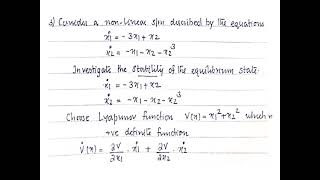 3) Consider a non-linear s/m described by the equations
ẋ1 = -3x1 + x2
ẋ2 = -x1 - x2 - x2³
Investigate the stability of the equilibrium state.
ẋ1 = -3x1 + x2
ẋ2 = -x1 - x2 - x2³
Choose Lyapunov function V(x) = x1² + x2² which is
+ve definite function
V̇(x) = ∂V/∂x1 · ẋ1 + ∂V/∂x2 · ẋ2